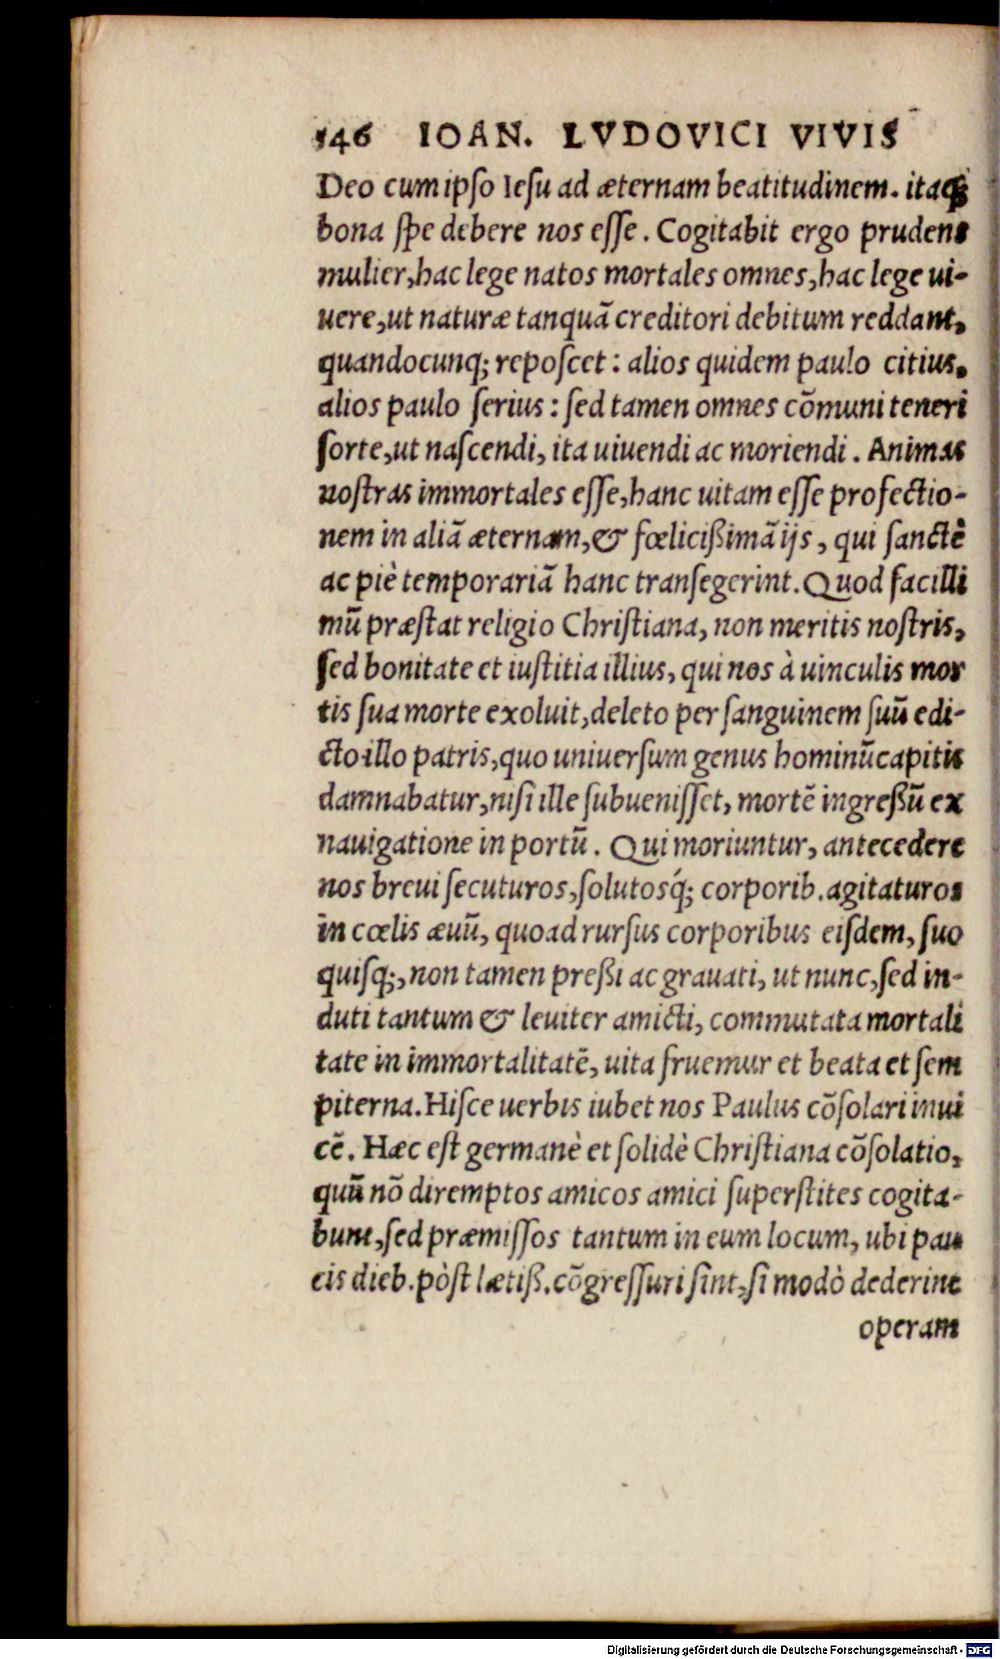 146 IOAN. LVDOVICI VIVIS
Deo cum ipso Iesu ad æternam beatitudinem. itaq;
bona spe debere nos esse. Cogitabit ergo prudens
mulier, hac lege natos mortales omnes, hac lege ui-
uere, ut naturæ tanquã creditori debitum reddant,
quandocunq; reposcet: alios quidem paulo citius,
alios paulo serius: sed tamen omnes cõmuni teneri
sorte, ut nascendi, ita uiuendi ac moriendi. Animas
nostras immortales esse, hanc uitam esse profectio-
nem in aliã æternam, & fœlicißimã ijs, qui sanctè
ac piè temporariã hanc transegerint. Quod facilli
mũ præstat religio Christiana, non meritis nostris,
sed bonitate et iustitia illius, qui nos à uinculis mor
tis sua morte exoluit, deleto per sanguinem suũ edi-
cto illo patris, quo uniuersum genus hominũ capitis
damnabatur, nisi ille subuenisset, mortẽ ingreßũ ex
nauigatione in portũ. Qui moriuntur, antecedere
nos breui secuturos, solutosq́; corporib. agitaturos
in cœlis æuũ, quoad rursus corporibus eisdem, suo
quisq;, non tamen preßi ac grauati, ut nunc, sed in-
duti tantum & leuiter amicti, commutata mortali
tate in immortalitatẽ, uita fruemur et beata et sem
piterna. Hisce uerbis iubet nos Paulus cõsolari inui
cẽ. Hæc est germanè et solidè Christiana cõsolatio,
quũ nõ diremptos amicos amici superstites cogita-
bunt, sed præmissos tantum in eum locum, ubi pau
cis dieb. pòst lætiß. cõgressuri sint, si modò dederint
operam
Digitalisierung gefördert durch die Deutsche Forschungsgemeinschaft - DFG